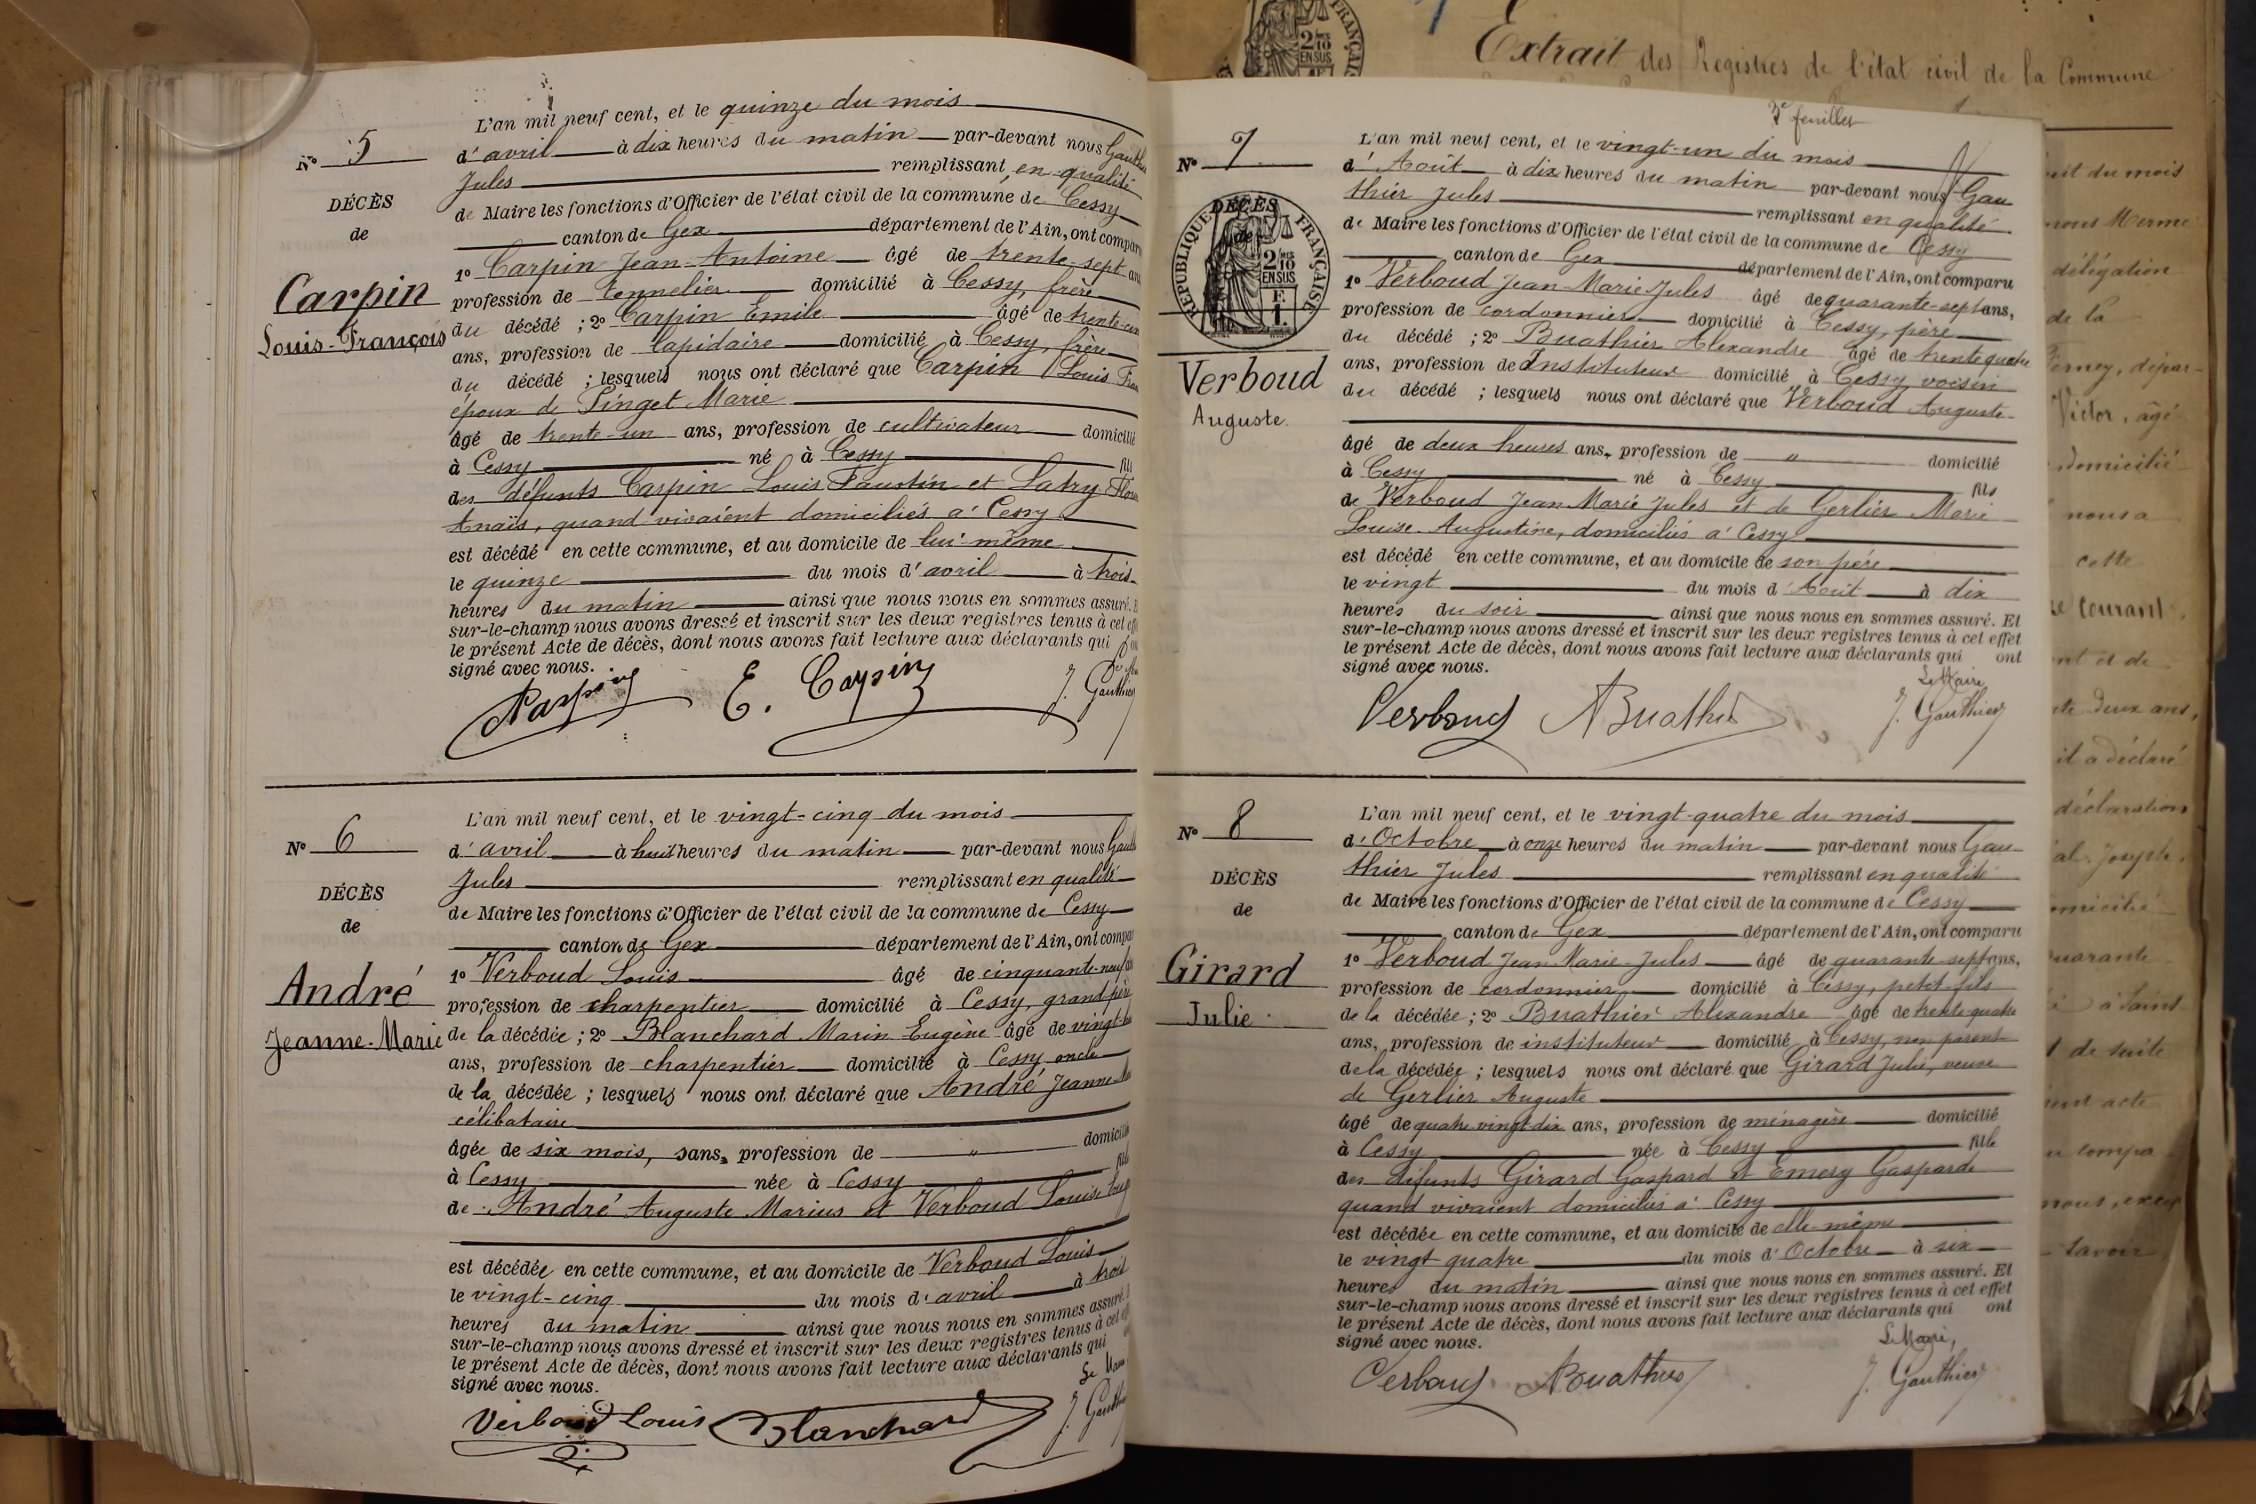 L'an mil neuf cent, et le quinze du mois
N° 5
d'avril à dix heures du matin par-devant nous Gauthier
Jules remplissant en qualité
DÉCÈS
de Maire les fonctions d'Officier de l'état civil de la commune de Cessy
de
canton de Gex département de l'Ain, ont comparu
1° Carpin Jean-Antoine âgé de trente-sept ans
Carpin
profession de tonnelier domicilié à Cessy, frère
Louis-François
du décédé ; 2° Carpin Emile âgé de trente-cinq
ans, profession de lapidaire domicilié à Cessy, frère
du décédé ; lesquels nous ont déclaré que Carpin Louis Fran
époux de Pinget Marie
âgé de trente-un ans, profession de cultivateur domicilié
à Cessy né à Cessy fils
des défunts Carpin Louis Faustin et Latry
Anaïs, quand vivaient domiciliés à Cessy
est décédé en cette commune, et au domicile de lui-même
le quinze du mois d'avril à trois
heures du matin ainsi que nous nous en sommes assuré. E
sur-le-champ nous avons dressé et inscrit sur les deux registres tenus à cet eff
le présent Acte de décès, dont nous avons fait lecture aux déclarants qui
signé avec nous.
E. Carpin
J. Gauthier
L'an mil neuf cent, et le vingt-cinq du mois
N° 6
d'avril à huit heures du matin par-devant nous Gauth
Jules remplissant en qualité
DÉCÈS
de Maire les fonctions d'Officier de l'état civil de la commune de Cessy
de
canton de Gex département de l'Ain, ont compar
1° Verboud Louis âgé de cinquante-neuf ans
André
profession de charpentier domicilié à Cessy, grand-père
Jeanne-Marie
de la décédée ; 2° Blanchard Marin Eugène âgé de vingt
ans, profession de charpentier domicilié à Cessy, oncle
de la décédée ; lesquels nous ont déclaré que André Jeanne
célibataire
âgée de six mois, sans profession de " domicilié
à Cessy née à Cessy fill
de André Auguste Marius et Verboud Louise
est décédée en cette commune, et au domicile de Verboud Louis
le vingt-cinq du mois d'avril à trois
heures du matin ainsi que nous nous en sommes assuré.
sur-le-champ nous avons dressé et inscrit sur les deux registres tenus à cet
le présent Acte de décès, dont nous avons fait lecture aux déclarants qui
signé avec nous.
Le Maire
Verboud Louis Blanchard J. Gauthier
Extrait des Registres de l'état civil de la Commune
3e feuillet
L'an mil neuf cent, et le vingt-un du mois
N° 7
d'Août à dix heures du matin par-devant nous Gau
thier Jules remplissant en qualité
DÉCÈS
de Maire les fonctions d'Officier de l'état civil de la commune de Cessy
de
canton de Gex département de l'Ain, ont comparu
RÉPUBLIQUE FRANÇAISE
2/10 EN SUS
1° Verboud Jean-Marie Jules âgé de quarante-sept ans,
profession de cordonnier domicilié à Cessy, père
du décédé ; 2° Buathier Alexandre âgé de trente quatre
Verboud
ans, profession de Instituteur domicilié à Cessy, voisin
Auguste
du décédé ; lesquels nous ont déclaré que Verboud Auguste
âgé de deux heures ans, profession de " domicilié
à Cessy né à Cessy fils
de Verboud Jean-Marie Jules et de Gerlier Marie
Louise-Augustine, domiciliés à Cessy
est décédé en cette commune, et au domicile de son père
le vingt du mois d'Août à dix
heures du soir ainsi que nous nous en sommes assuré. Et
sur-le-champ nous avons dressé et inscrit sur les deux registres tenus à cet effet
le présent Acte de décès, dont nous avons fait lecture aux déclarants qui ont
signé avec nous.
Le Maire
Verboud ABuathier J. Gauthier
L'an mil neuf cent, et le vingt-quatre du mois
N° 8
d'Octobre à onze heures du matin par-devant nous Gau
thier Jules remplissant en qualité
DÉCÈS
de Maire les fonctions d'Officier de l'état civil de la commune de Cessy
de
canton de Gex département de l'Ain, ont comparu
1° Verboud Jean-Marie-Jules âgé de quarante-sept ans,
Girard
profession de cordonnier domicilié à Cessy, petit fils
Julie
de la décédée ; 2° Buathier Alexandre âgé de trente-quatre
ans, profession de instituteur domicilié à Cessy, non parent
de la décédée ; lesquels nous ont déclaré que Girard Julie, veuve
de Gerlier Auguste
âgé de quatre vingt-dix ans, profession de ménagère domicilié
à Cessy née à Cessy fille
des défunts Girard Gaspard et Emery Gasparde
quand vivaient domiciliés à Cessy
est décédée en cette commune, et au domicile de elle-même
le vingt quatre du mois d'Octobre à six
heures du matin ainsi que nous nous en sommes assuré. Et
sur-le-champ nous avons dressé et inscrit sur les deux registres tenus à cet effet
le présent Acte de décès, dont nous avons fait lecture aux déclarants qui ont
signé avec nous.
Le Maire,
Verboud ABuathier J. Gauthier
du mois
nous Merme
délégation
de la
Ferney, dépar-
Victor, âgé
domicilié
nous a
cette
courant,
et de
deux ans,
il a déclaré
déclaration
Joseph,
quarante
à Saint
de suite
acte
compa
nous,
savoir